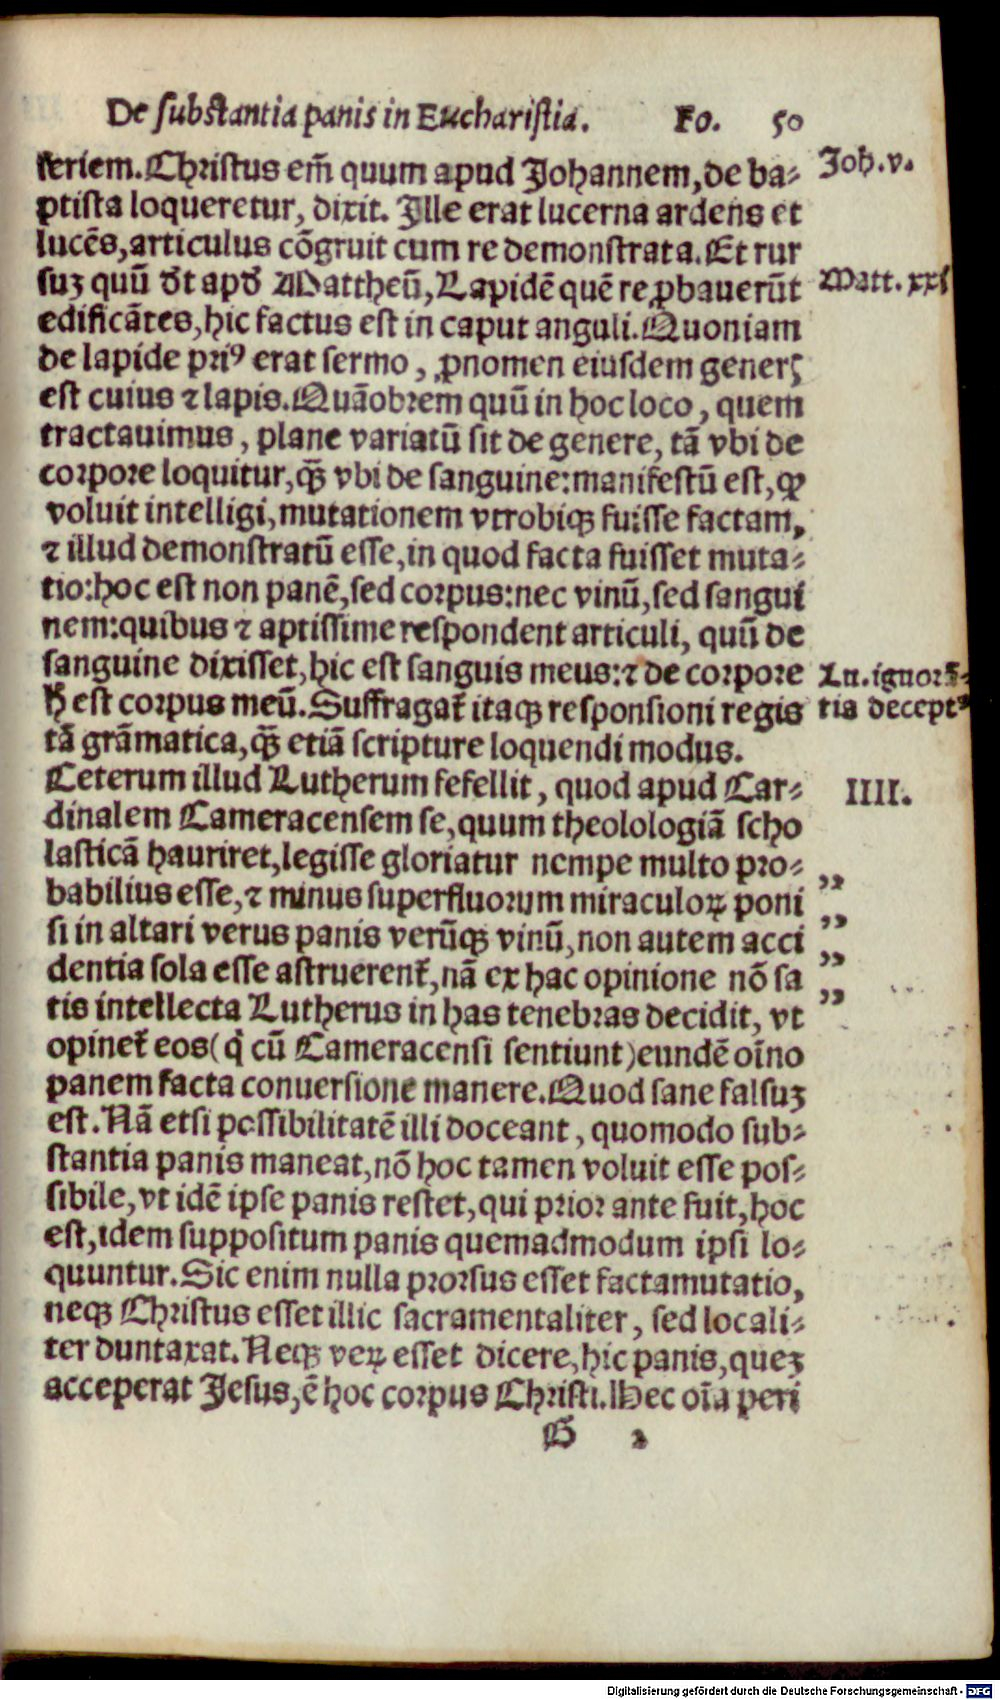 De substantia panis in Eucharistia. Fo. 50
seriem. Christus em̃ quum apud Johannem, de ba-
ptista loqueretur, dixit. Ille erat lucerna ardens et
Joh. v.
lucēs, articulus cōgruit cum re demonstrata. Et rur
suꝫ quū dr̄ apd̄ Mattheū, Lapidē quē reꝓbauerūt
Matt. xxi
edificātes, hic factus est in caput anguli. Quoniam
de lapide priꝰ erat sermo, ꝓnomen eiusdem generꝭ
est cuius ⁊ lapis. Quāobrem quū in hoc loco, quem
tractauimus, plane variatū sit de genere, tā vbi de
corpore loquitur, q̄ꝫ vbi de sanguine: manifestū est, ꝙ
voluit intelligi, mutationem vtrobiqꝫ fuisse factam,
⁊ illud demonstratū esse, in quod facta fuisset muta-
tio: hoc est non panē, sed corpus: nec vinū, sed sangui
nem: quibus ⁊ aptissime respondent articuli, quū de
sanguine dixisset, hic est sanguis meus: ⁊ de corpore
h̄ est corpus meū. Suffragat᷑ itaqꝫ responsioni regis
Lu. ignorā-
tia deceptꝰ
tā grāmatica, q̄ꝫ etiā scripture loquendi modus.
Ceterum illud Lutherum fefellit, quod apud Car-
IIII.
dinalem Cameracensem se, quum theolologiā scho
lasticā hauriret, legisse gloriatur nempe multo pro-
babilius esse, ⁊ minus superfluorum miraculoꝝ poni
,,
si in altari verus panis verūqꝫ vinū, non autem acci
,,
dentia sola esse astruerent᷑, nā ex hac opinione nō sa
,,
tis intellecta Lutherus in has tenebras decidit, vt
,,
opinet᷑ eos (q̇ cū Cameracensi sentiunt) eundē oīno
panem facta conuersione manere. Quod sane falsuꝫ
est. Nā etsi possibilitatē illi doceant, quomodo sub-
stantia panis maneat, nō hoc tamen voluit esse pos-
sibile, vt idē ipse panis restet, qui prior ante fuit, hoc
est, idem suppositum panis quemadmodum ipsi lo-
quuntur. Sic enim nulla prorsus esset facta mutatio,
neqꝫ Christus esset illic sacramentaliter, sed locali-
ter duntaxat. Neqꝫ veꝝ esset dicere, hic panis, queꝫ
acceperat Jesus, ē hoc corpus Christi. Hec oīa peri
G 2
Digitalisierung gefördert durch die Deutsche Forschungsgemeinschaft - DFG